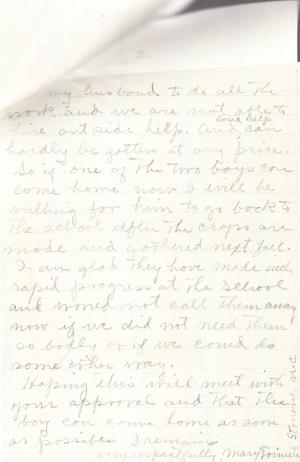 my husband to do all the
work and we are not able to
hire out side help. And can
hired help
hardly be gotten at any price.
So if one of the two boys can
come home now I will be
willing for him to go back to
the school after the crops are
made and gathered next fall.
I am glad they have made such
rapid progress at the school
and would not call them away
now if we did not need them
so badly or if we could do
some other way.
Hoping this will meet with
your approval and that the
boy can come home as soon
as possible I remain
very respectfully, Mary
N.C.